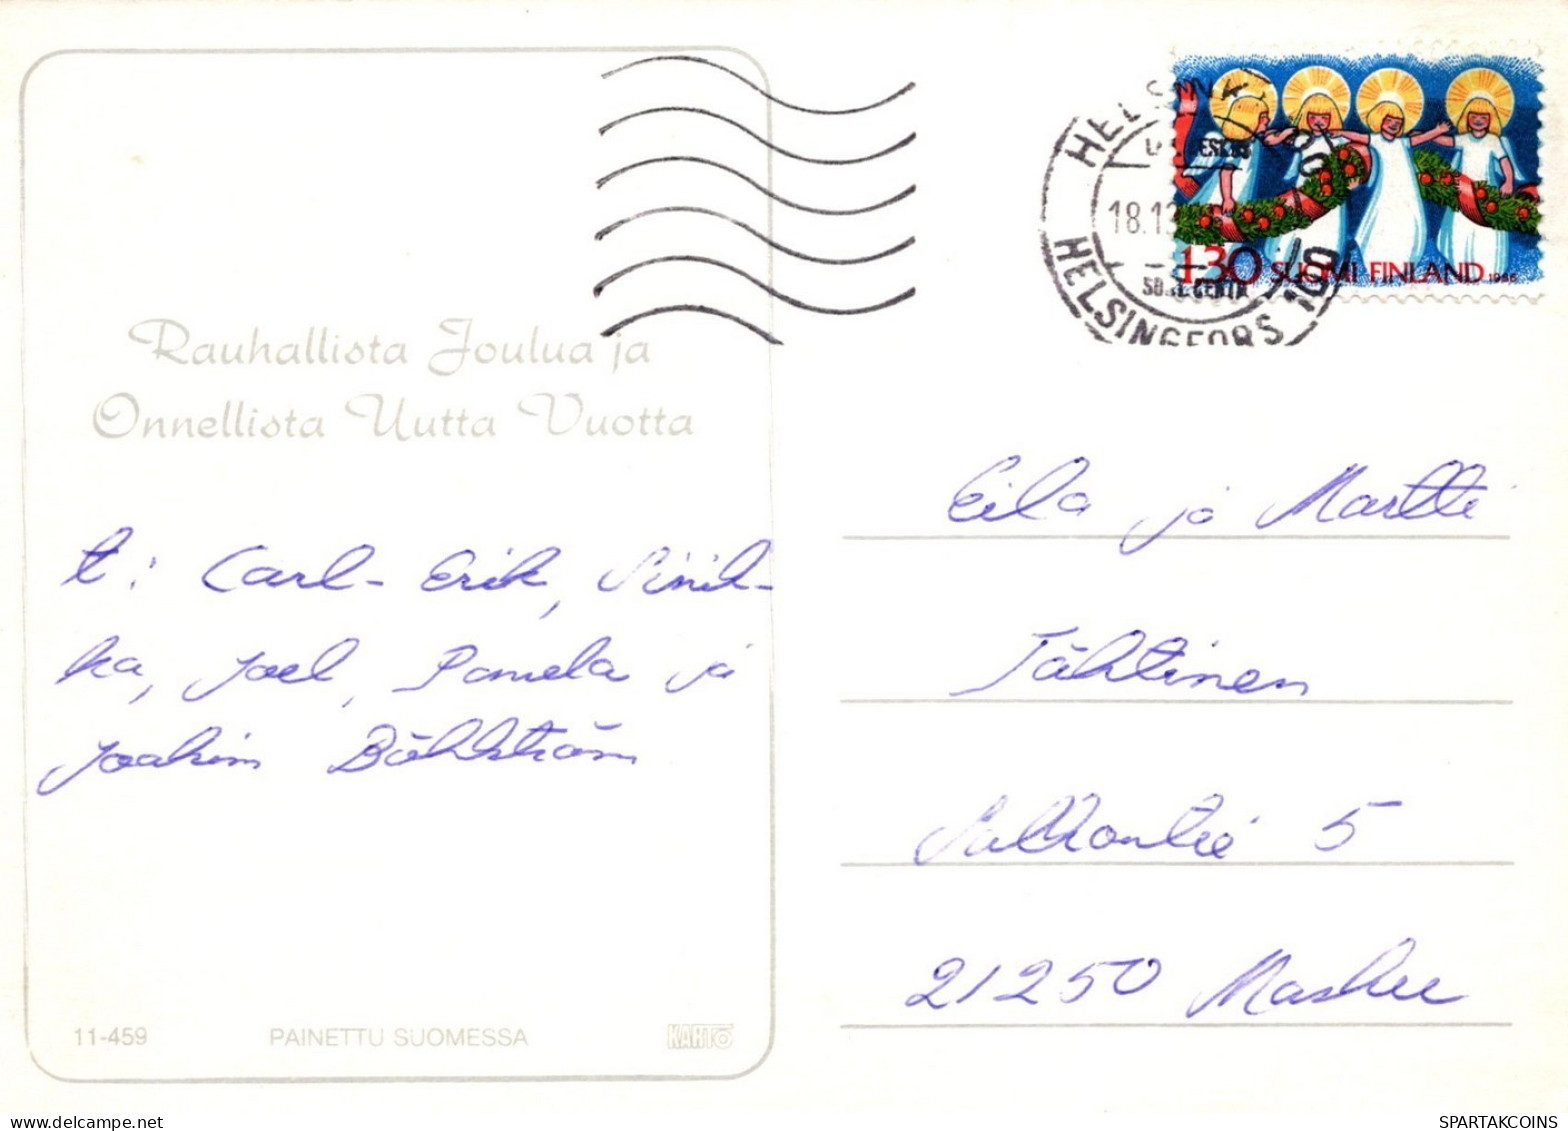 HELSINKI 100
18.12
HELSINGFORS 100
1.30 SUOMI FINLAND 1986
Rauhallista Joulua ja
Onnellista Uutta Vuotta
t: Carl-Erik, Sinik-
ka, Joel, Pamela ja
Joakim
Eila ja Martti
Tähtinen
5
21250 Masku
11-459 PAINETTU SUOMESSA KARTO
SPARTAKCOINS